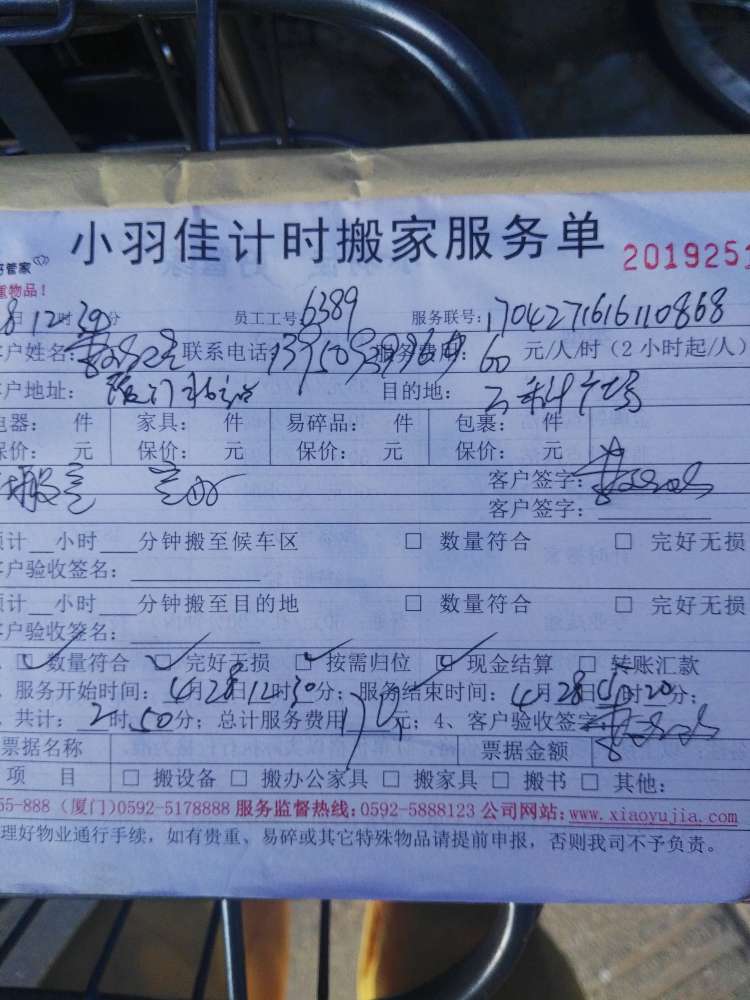 小羽佳计时搬家服务单 2019251
好管家
重物品！
8 12时30分 员工工号：6389 服务联号：1704271616110868
客户姓名： 联系电话： 服务费用：60元/人/时（2小时起/人）
客户地址： 目的地：
电器： 件 家具： 件 易碎品： 件 包裹： 件
保价： 元 保价： 元 保价： 元 保价： 元
客户签字：
客户签字：
预计__小时___分钟搬至候车区 □ 数量符合 □ 完好无损
客户验收签名：
预计__小时___分钟搬至目的地 □ 数量符合 □ 完好无损
客户验收签名：
☑ 数量符合 ☑ 完好无损 ☑ 按需归位 ☑ 现金结算 □ 转账汇款
服务开始时间：4月28日12时30分；服务结束时间：4月28日 时20分；
共计：2时50分；总计服务费用170元；4、客户验收签字
票据名称 票据金额
项 目 □ 搬设备 □ 搬办公家具 □ 搬家具 □ 搬书 □ 其他：
55-888（厦门）0592-5178888 服务监督热线：0592-5888123 公司网站：www.xiaoyujia.com
理好物业通行手续，如有贵重、易碎或其它特殊物品请提前申报，否则我司不予负责。